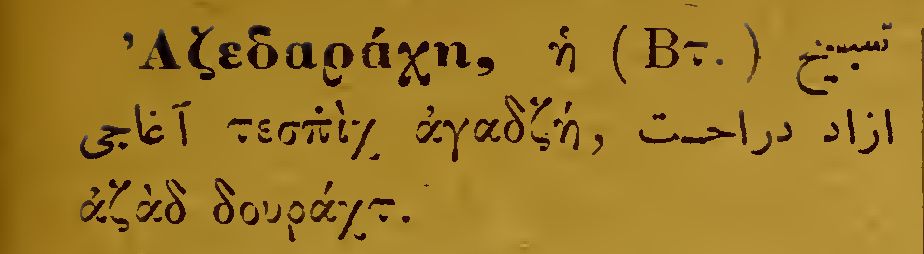 Ἀζεδαράχη, ἡ (Βτ.) تسبيح
آغاجی τεσπὶχ ἀγαδζή, ازاد دراحت
ἀζὰδ δουράχτ.